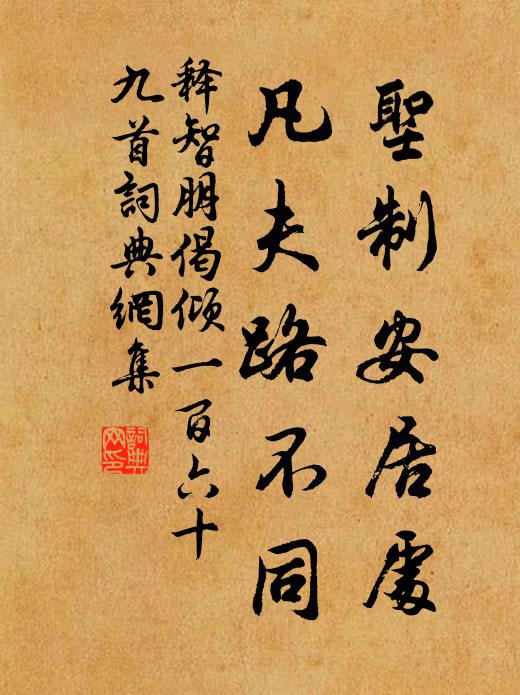 聖制安居處
凡夫路不同
释智朋偈倾一百六十
九首詞典網集
詞典网印